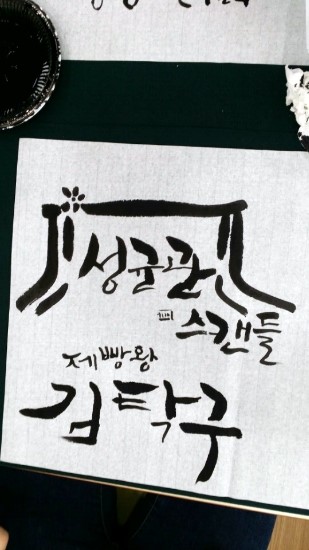 성균관
스캔들
제빵왕
김탁구